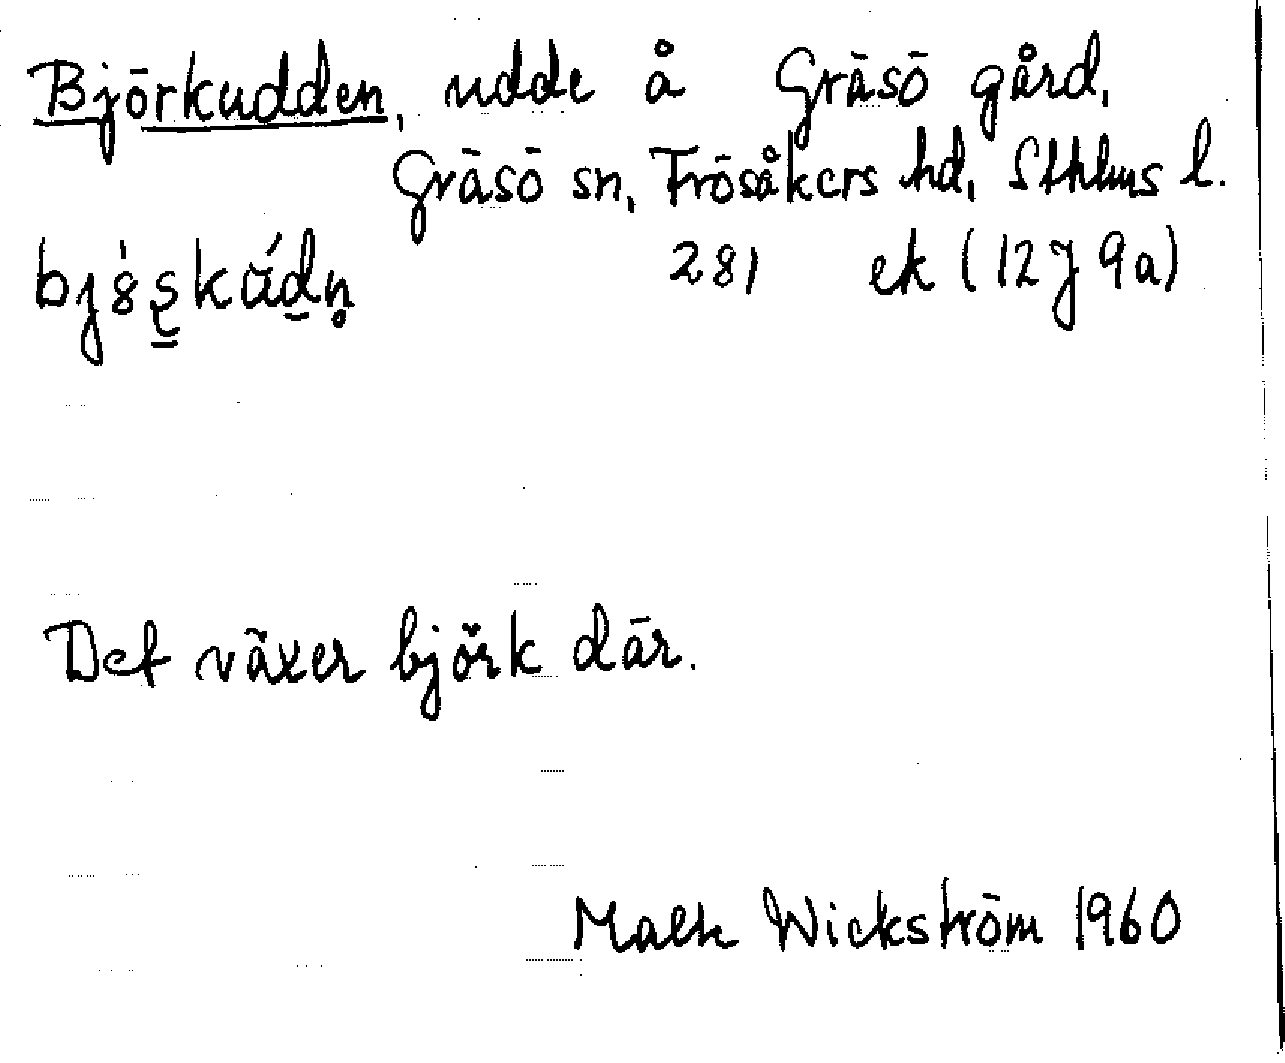 Björkudden, udde å Gräsö gård,
Gräsö sn, Frösåkers hd, Sthlms l.
281 ek (12J 9a)
Det växer björk där.
Wickström 1960